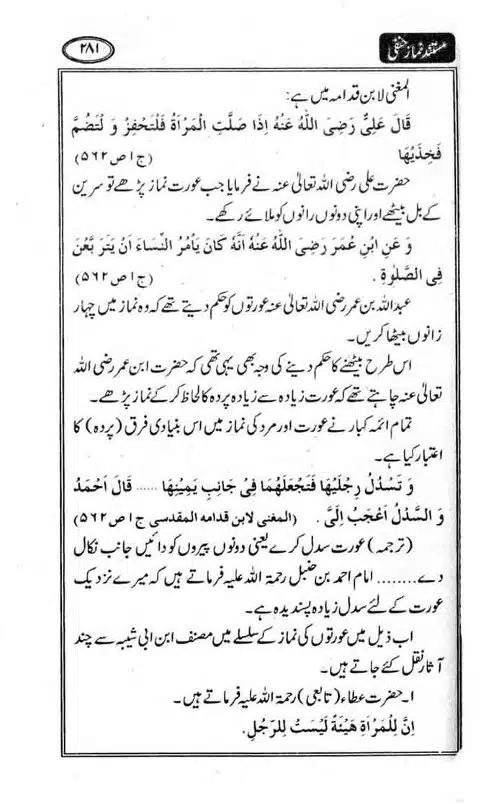 مستند نماز حنفی
۲۸۱
المغنی لابن قدامہ میں ہے:
قَالَ عَلِیٌّ رَضِیَ اللّٰهُ عَنْهُ اِذَا صَلَّتِ الْمَرْاَةُ فَلْتَحْفِزْ وَ لْتَضُمَّ
فَخِذَیْهَا (ج۱ ص ۵۶۲)
حضرت علی رضی اللہ تعالیٰ عنہ نے فرمایا جب عورت نماز پڑھے تو سرین
کے بل بیٹھے اور اپنی دونوں رانوں کو ملائے رکھے۔
وَ عَنِ ابْنِ عُمَرَ رَضِیَ اللّٰهُ عَنْهُ اَنَّهٗ کَانَ یَاْمُرُ النِّسَاءَ اَنْ یَتَرَبَّعْنَ
فِی الصَّلٰوةِ . (ج۱ ص ۵۶۲)
عبداللہ بن عمر رضی اللہ تعالیٰ عنہ عورتوں کو حکم دیتے تھے کہ وہ نماز میں چہار
زانوں بیٹھا کریں۔
اس طرح بیٹھنے کا حکم دینے کی وجہ بھی یہی تھی کہ حضرت ابن عمر رضی اللہ
تعالیٰ عنہ چاہتے تھے کہ عورت زیادہ سے زیادہ پردہ کا لحاظ کر کے نماز پڑھے۔
تمام ائمہ کبار نے عورت اور مرد کی نماز میں اس بنیادی فرق (پردہ) کا
اعتبار کیا ہے۔
وَ تَسْدُلُ رِجْلَیْهَا فَتَجْعَلُهُمَا فِیْ جَانِبِ یَمِیْنِهَا ..... قَالَ اَحْمَدُ
وَ السَّدْلُ اَعْجَبُ اِلَیَّ . (المغنی لابن قدامه المقدسی ج۱ ص ۵۶۲)
(ترجمہ) عورت سدل کرے یعنی دونوں پیروں کو دائیں جانب نکال
دے........ امام احمد بن حنبل رحمۃ اللہ علیہ فرماتے ہیں کہ میرے نزدیک
عورت کے لئے سدل زیادہ پسندیدہ ہے۔
اب ذیل میں عورتوں کی نماز کے سلسلے میں مصنف ابن ابی شیبہ سے چند
آثار نقل کئے جاتے ہیں۔
۱۔ حضرت عطاء (تابعی) رحمۃ اللہ علیہ فرماتے ہیں۔
اِنَّ لِلْمَرْاَةِ هَیْئَةً لَیْسَتْ لِلرَّجُلِ.